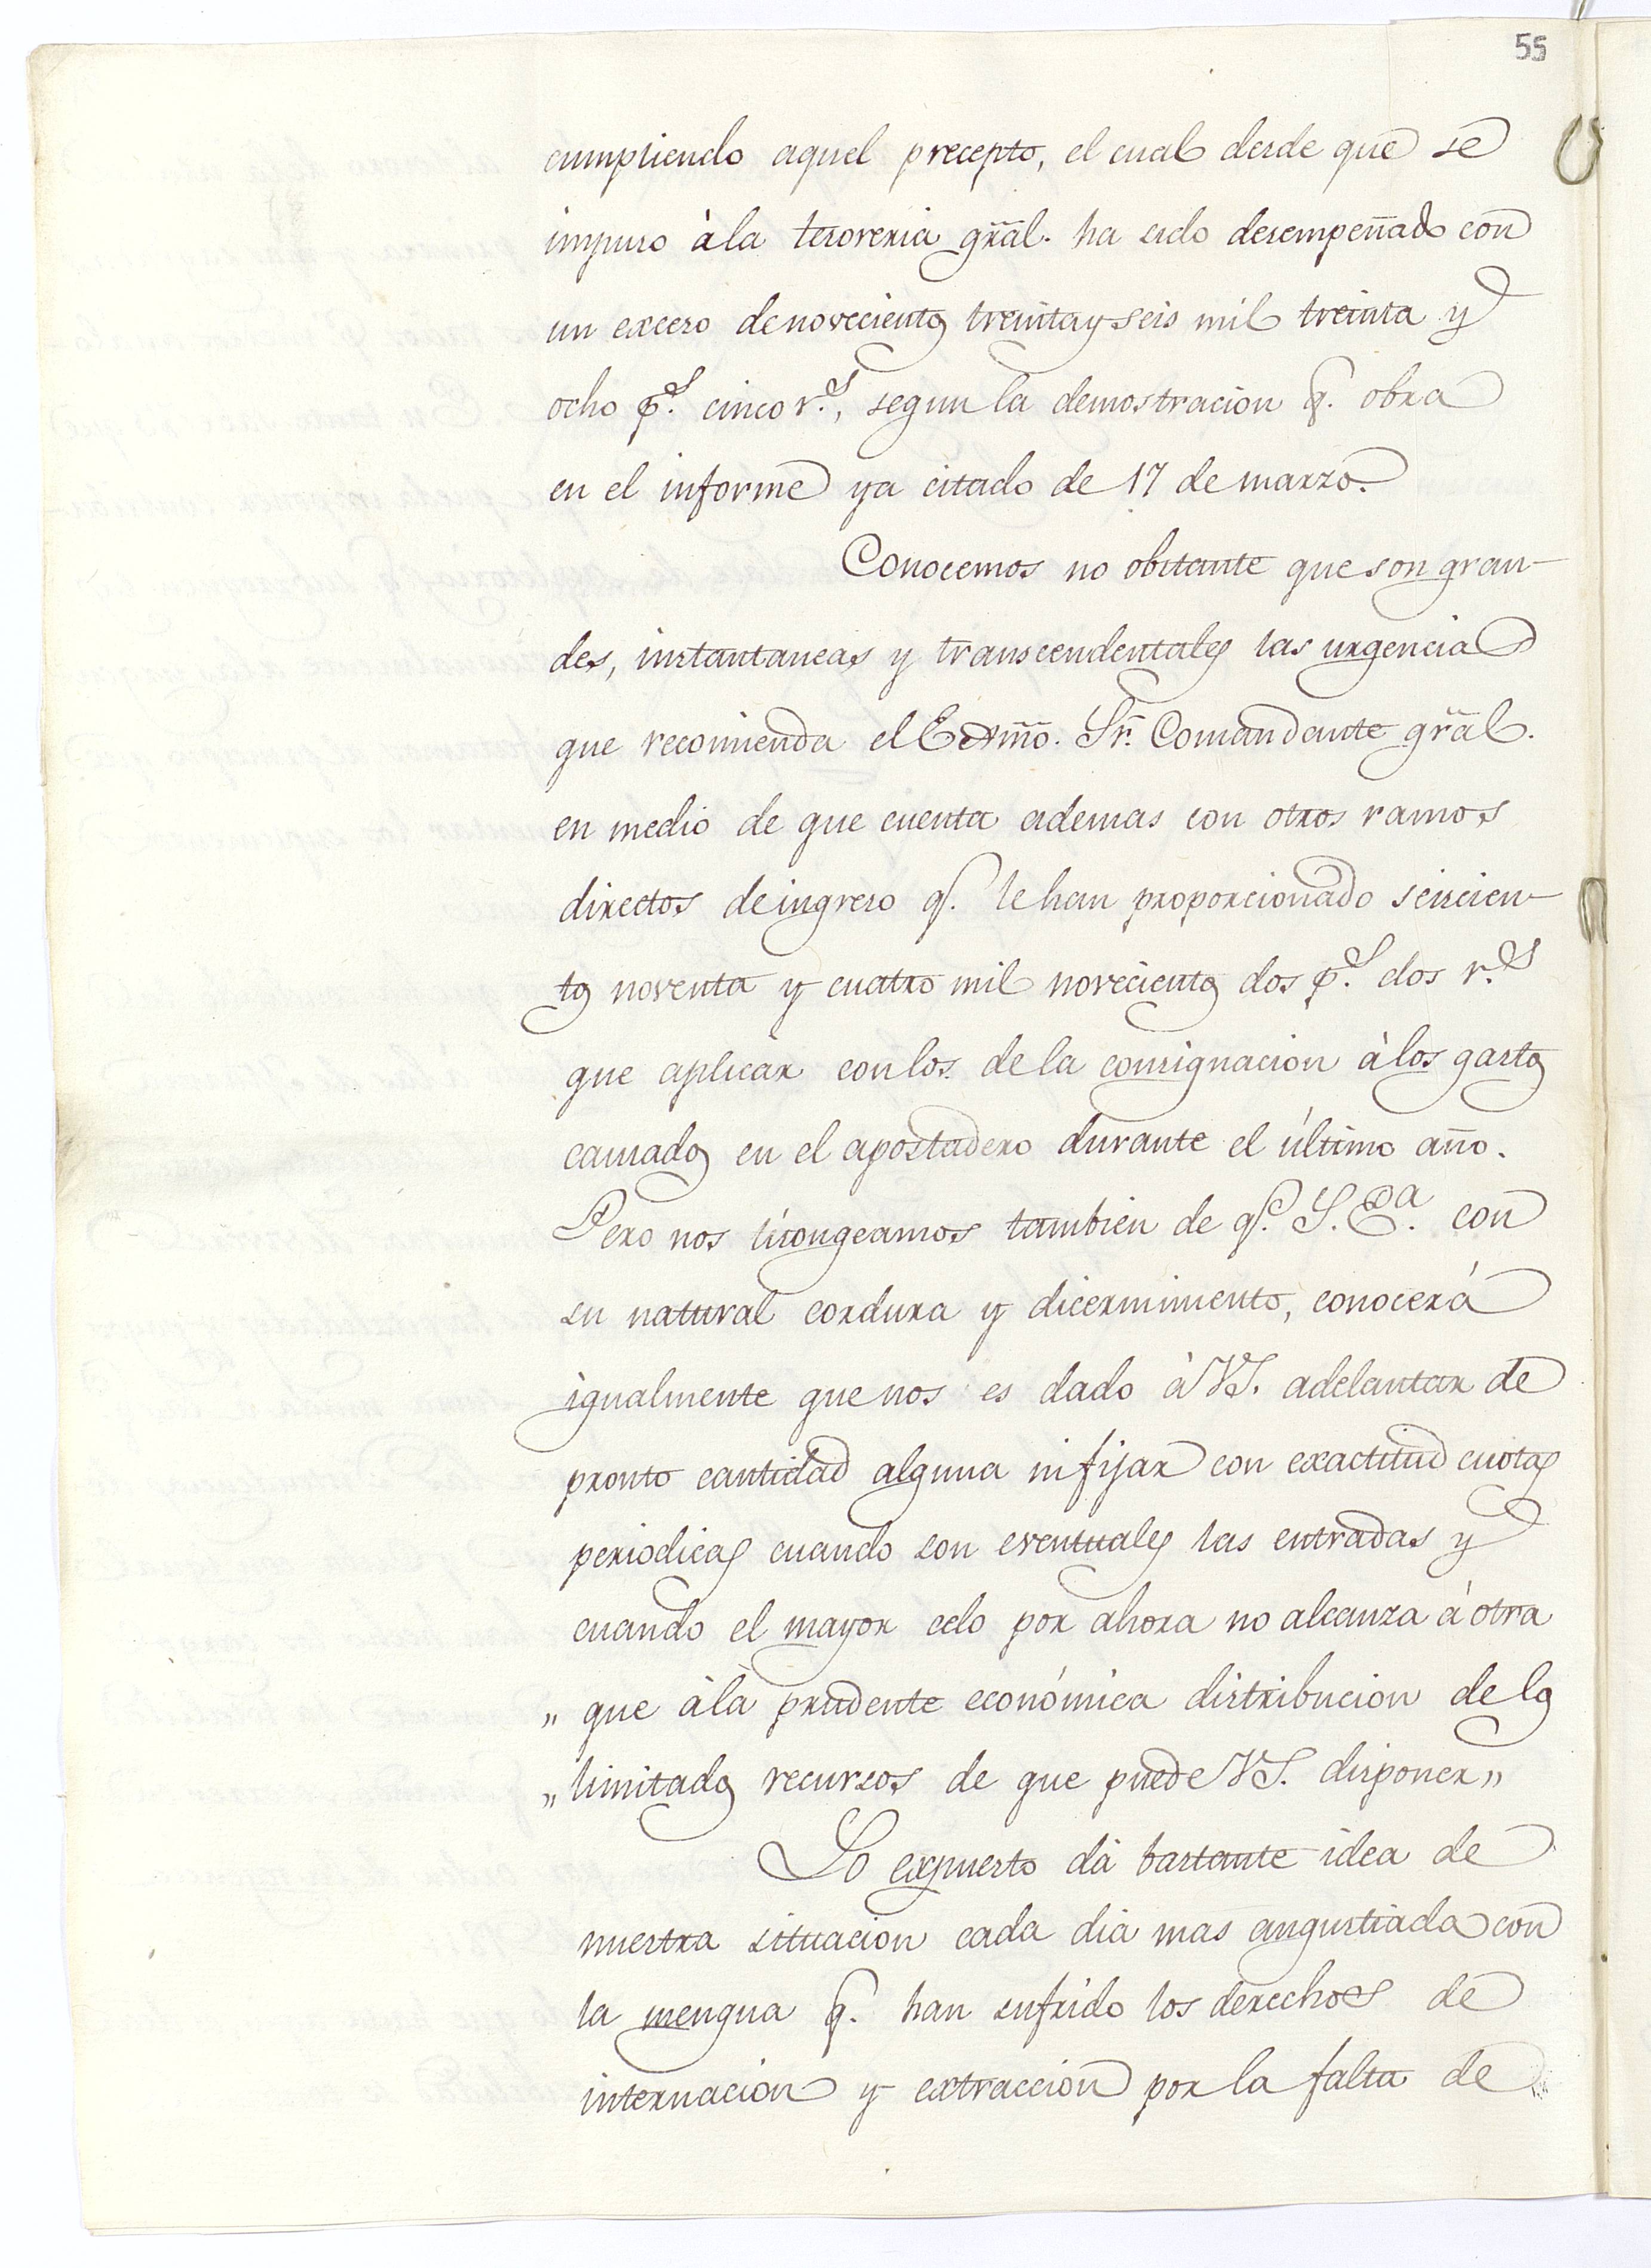 55
cumpliendo aquel precepto, el cual desde que se
impuso à la tesoreria gr̃al. ha sido desempeñado con
un exceso de novecientos treinta y seis mil treinta y
ocho p.s cinco r.s, segun la demostracion q. obra
en el informe ya citado de 17 de marzo.
Conocemos no obstante que son gran-
des, instantaneas y transcendentales las urgencias
que recomienda el Exm̃o. Sr. Comandante gr̃al.
en medio de que cuenta ademas con otros ramos
directos de ingreso q. le han proporcionado seiscien-
tos noventa y cuatro mil novecientos dos p.s dos r.s
que aplicar con los de la consignacion à los gastos
causados en el apostadero durante el último año.
Pero nos lisongeamos tambien de q.e S. E.a con
su natural cordura y dicernimiento, conocerá
igualmente que nos es dado à VS. adelantar de
pronto cantidad alguna ni fijar con exactitud cuotas
periodicas cuando son eventuales las entradas y
cuando el mayor celo por ahora no alcanza á otra
„ que à la prudente económica distribucion de los
„ limitados recursos de que puede VS. disponer„
Lo expuesto dà bastante idea de
nuestra situacion cada dia mas angustiada con
la mengua q. han sufrido los derechos de
internacion y extraccion por la falta de